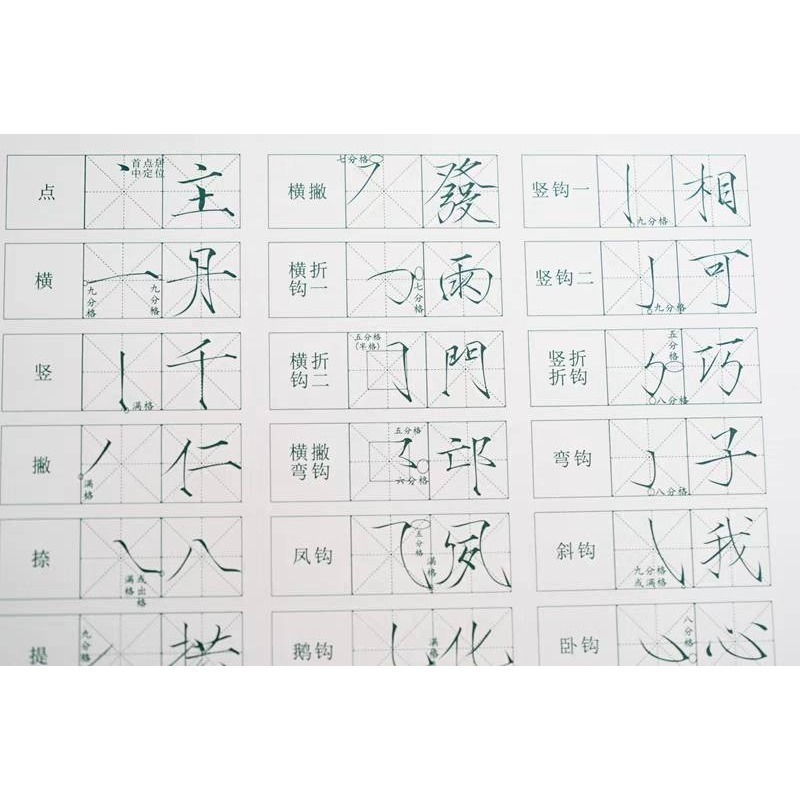 点
首点居
中定位
主
横
九分格
九分格
丹
竖
满格
千
撇
满格
仁
捺
满格
或出格
八
提
九分格
横撇
七分格
發
横折
钩一
七分格
雨
横折
钩二
五分格
(半格)
門
横撇
弯钩
五分格
六分格
凤钩
五分格
满格
鹅钩
满格
化
竖钩一
九分格
相
竖钩二
九分格
可
竖折
折钩
五分格
八分格
巧
弯钩
八分格
子
斜钩
九分格
或满格
我
卧钩
八分格
心